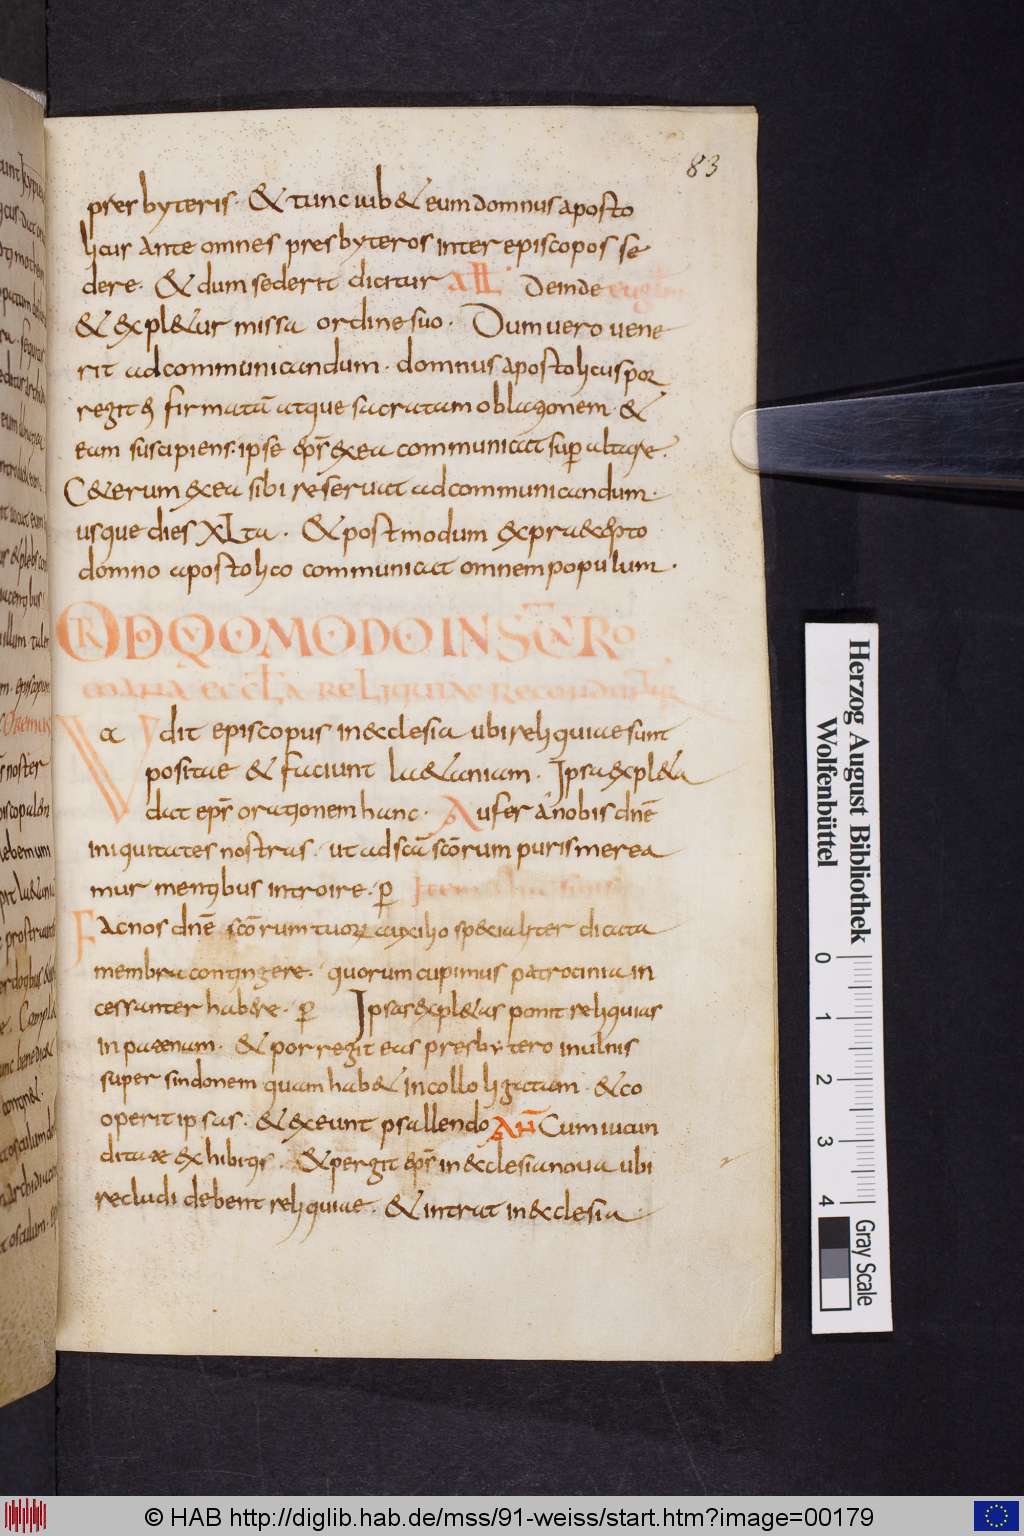 83
presbyteris. & tunc iub& eum domnus aposto
licus ante omnes presbyteros inter episcopos se
dere. & dum sederit dicitur ALL. Deinde euglm
& expl&ur missa ordine suo. Dum uero uene
rit ad communicandum. domnus apostolicus por
regit ei firmatā atque sacratam oblationem. &
eam suscipiens. ipse eps̄ ex ea communicat super altare.
C&erum ex ea sibi reseruat ad communicandum.
usque dies XLta. & postmodum ex praecepto
domno apostolico communicat omnem populum.
ORD QVOMODO IN SC̄A RO
MANA ECCLA RELIQUIAE RECONDUNTUR
Vadit episcopus in ecclesia ubi reliquiae sunt
positae & faciunt la&aniam. Ipsa expl&a
dat eps̄ orationem hanc. Aufer a nobis dn̄e
iniquitates nostras. ut ad sc̄a sc̄orum puris merea
mur mentibus introire. p
Fac nos dn̄e sc̄orum tuorum auxilio specialiter dicata
membra contingere. quorum cupimus patrocinia in
cessanter habere. p Ipsas expl&as ponit reliquias
in patenam. & porregit eas presbytero in ulnis
super sindonem quam hab& in collo ligatam. & co
operit ipsas. & exeunt psallendo AN̄ Cum iucun
ditate exhibitis. & pergit eps̄ in ecclesia noua ubi
recludi debent reliquiae. & intrat in ecclesia
Herzog August Bibliothek
Wolfenbüttel
0 1 2 3 4
Gray Scale
© HAB http://diglib.hab.de/mss/91-weiss/start.htm?image=00179